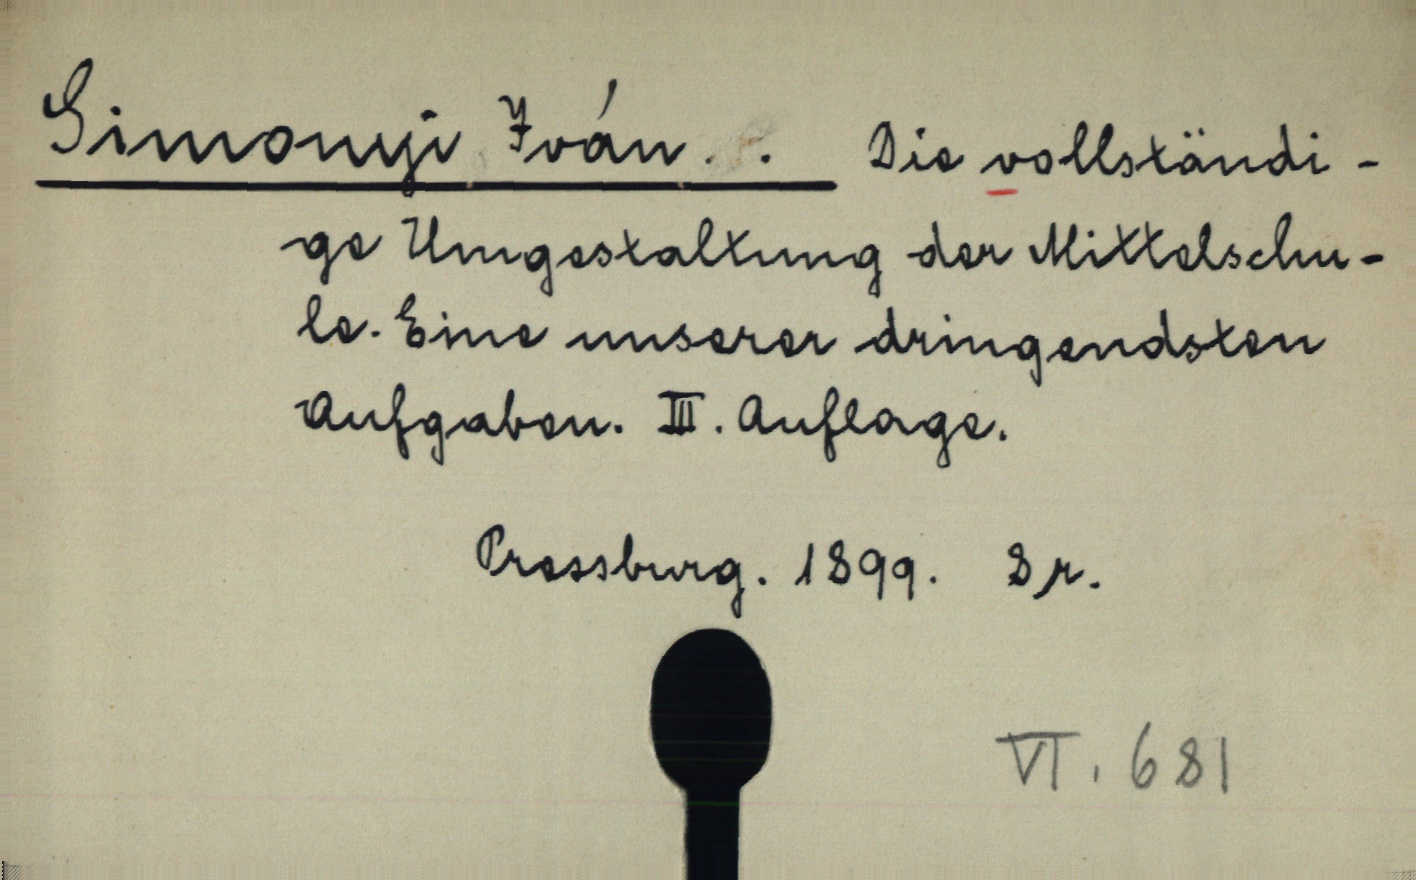 Simonyi Iván. . Die vollständi-
ge Umgestaltung der Mittelschu-
le. Eine unserer dringendsten
Aufgaben. III. Auflage.
Pressburg. 1899. 8r.
VI. 681